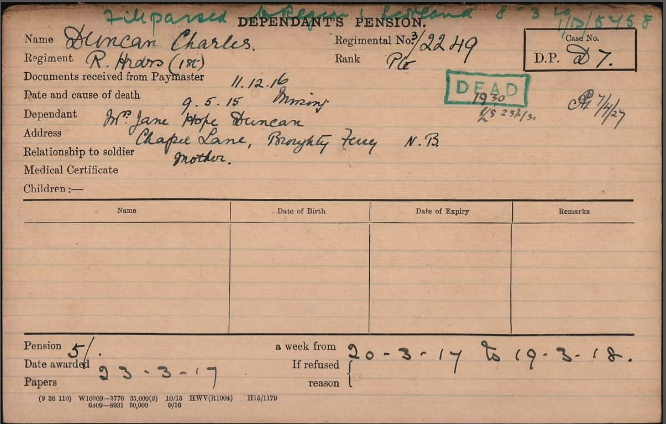 File passed to Region 1 Scotland 8-3-20
DEPENDANT'S PENSION.
1/D/5458
Name Duncan Charles.
Regimental No. 3/2249
Case No.
Regiment R. Hrdrs (1st)
Rank Pte
D.P. D7.
Documents received from Paymaster 11.12.16
DEAD
1930
Date and cause of death 9.5.15 Missing
7/4/27
Dependant Mrs Jane Hope Duncan
Address Chapel Lane, Broughty Ferry N.B.
Relationship to soldier Mother.
Medical Certificate
Children:—
Name Date of Birth Date of Expiry Remarks
Pension 5/. a week from 20-3-17 to 19-3-18.
Date awarded 23-3-17 If refused
Papers reason
(9 38 110) W10909—3776 35,000(2) 10/15 HWV(R1904) H15/1179
6809—8931 50,000 9/16